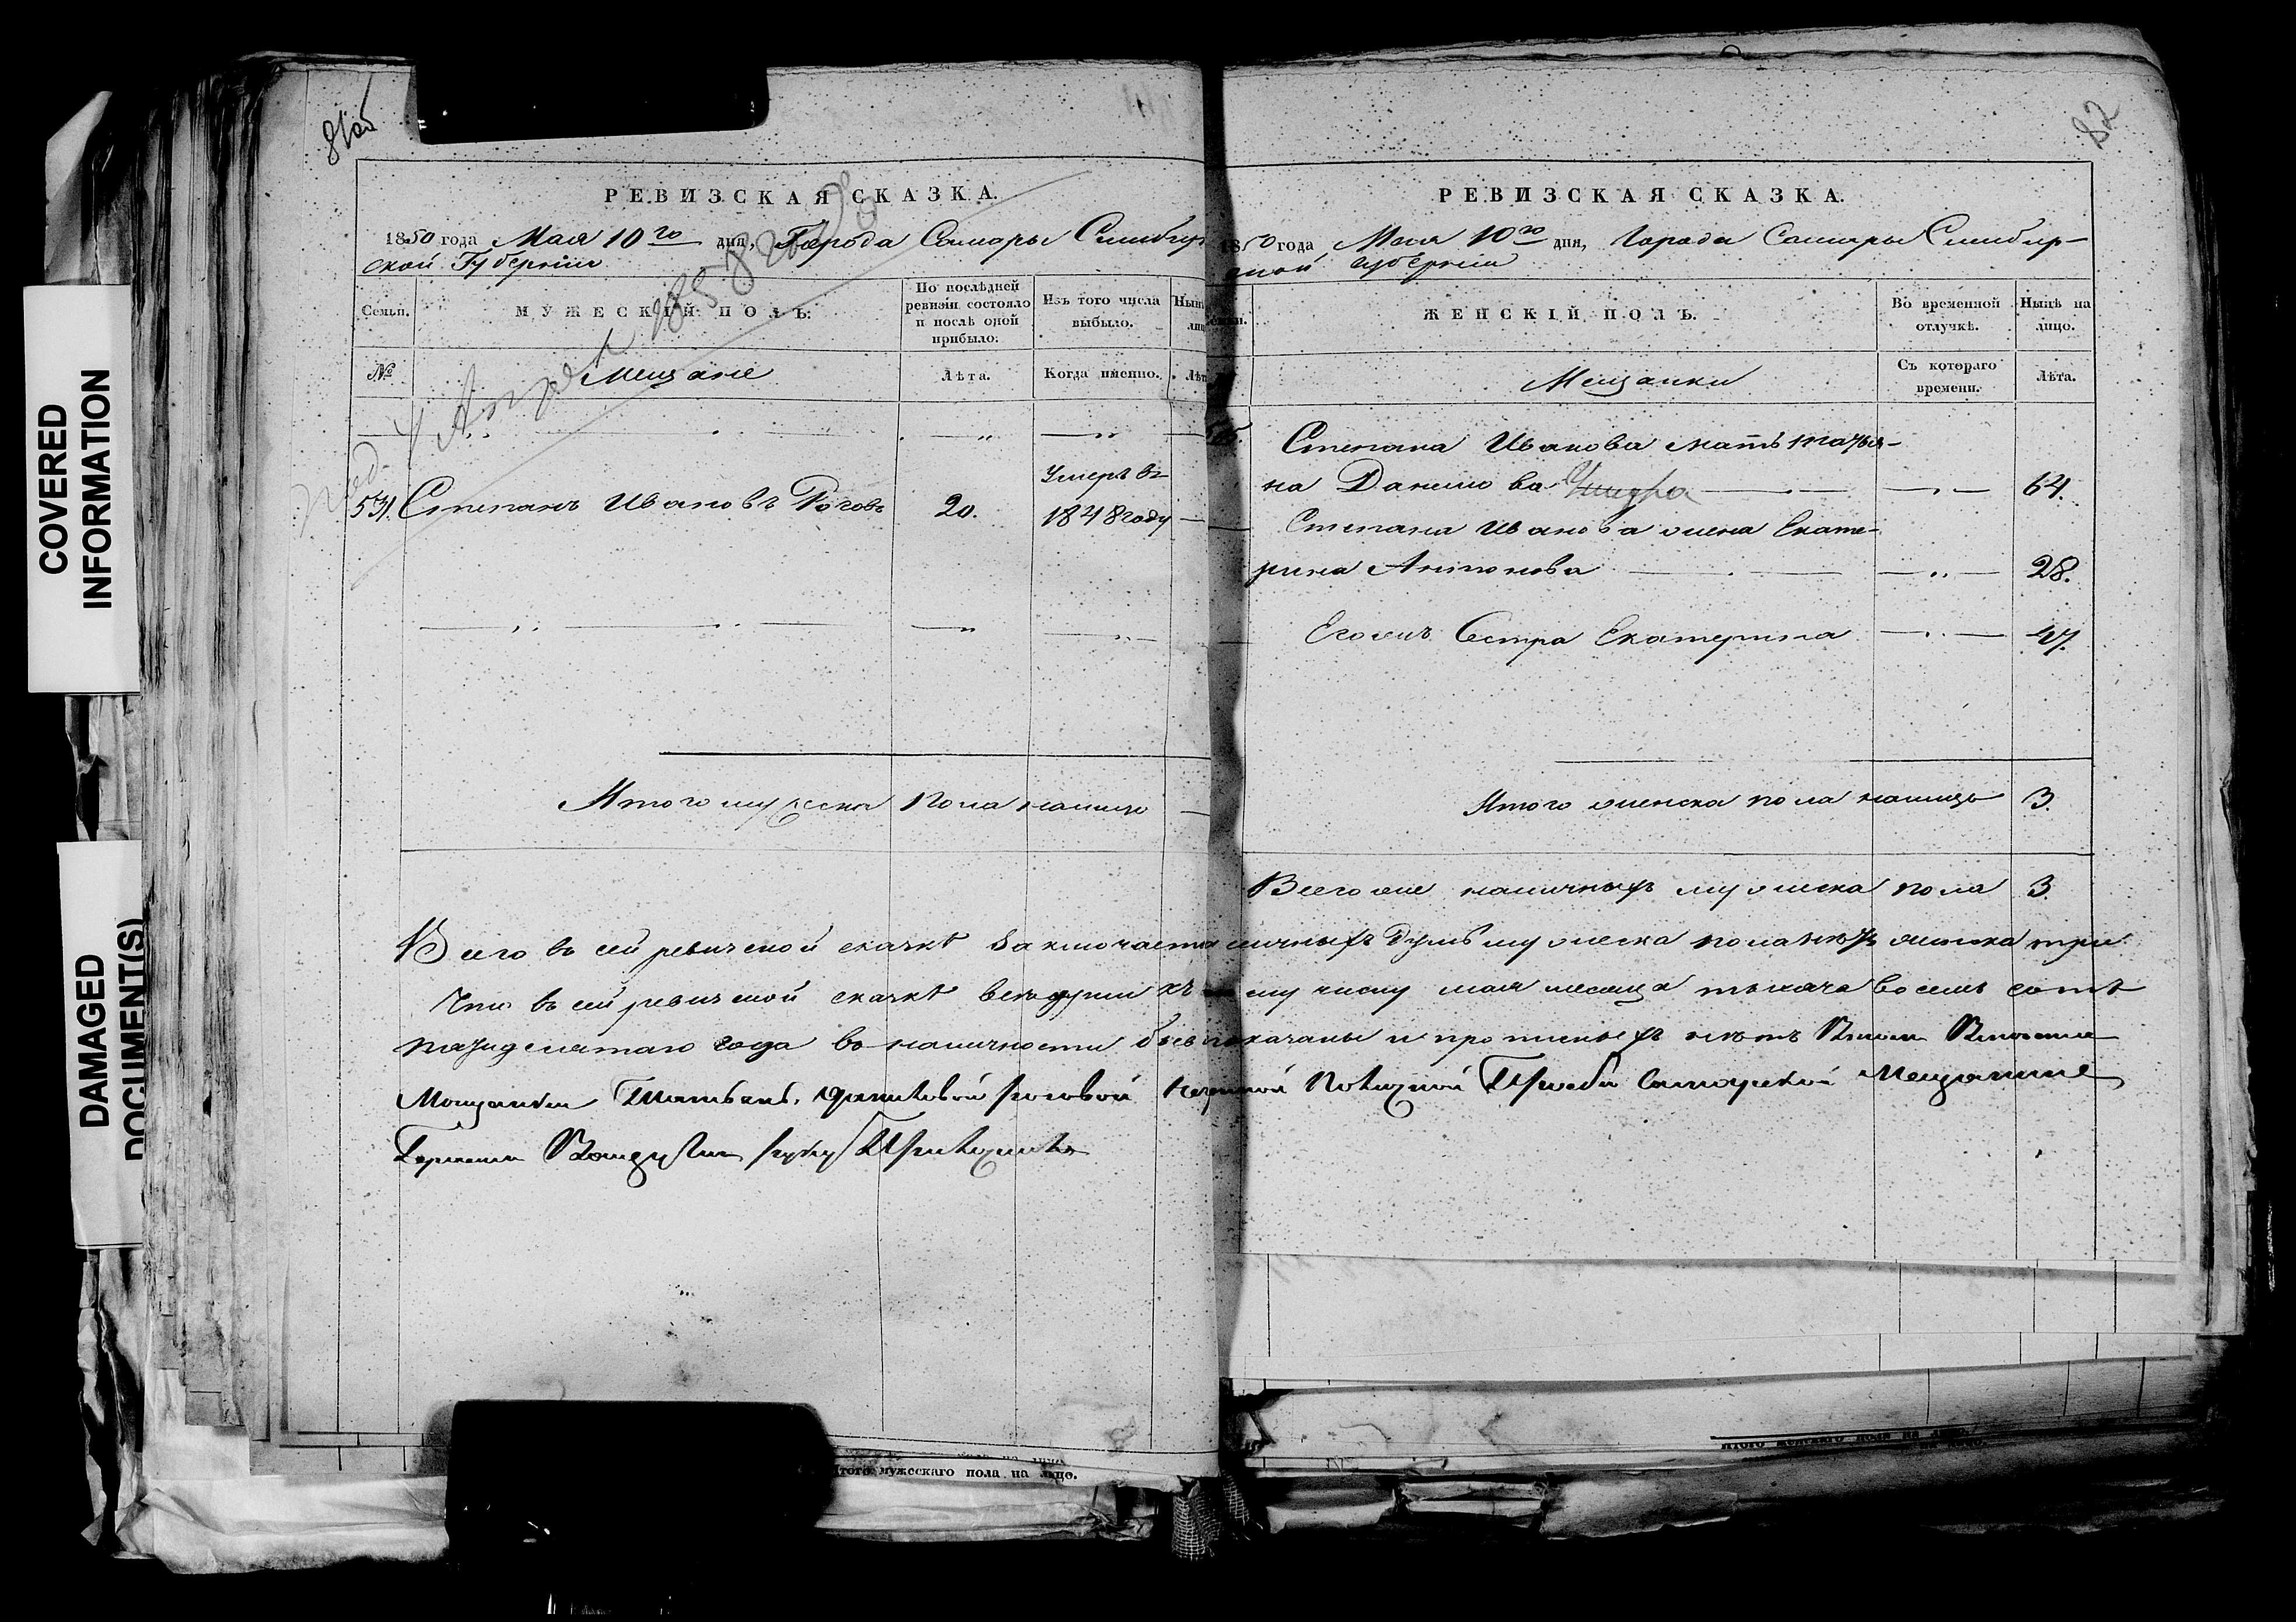 COVERED
INFORMATION
DAMAGED
DOCUMENT(S)
81об
РЕВИЗСКАЯ СКАЗКА.
1850 года Мая 10го дня, Города Самары Симбир
ской Губернии
Семьи.
МУЖЕСКІЙ ПОЛЪ.
По послѣдней
ревизіи состояло
и послѣ оной
прибыло.
Изъ того числа
выбыло.
№
Мещане
Лѣта.
Когда именно.
1858 года
531. Степанъ Ивановъ Роговъ
20.
Умеръ въ
1848 году
Итого мужеска пола налицо
82
РЕВИЗСКАЯ СКАЗКА.
1850 года Мая 10го дня, Города Самары Симбир-
ской Губерніи
ЖЕНСКІЙ ПОЛЪ.
Во временной
отлучкѣ.
Нынѣ на
лицо.
Мещанки
Съ котораго
времени.
Лѣта.
Степана Иванова мать Татья-
на Данилова
64.
Степана Иванова жена Екате-
рина Антонова
28.
Егожъ Сестра Екатерина
47.
Итого женска пола налицо 3.
Всего же наличныхъ мужеска пола 3
Всего въ сей ревизской сказкѣ заключается личныхъ душъ мужеска пола нѣтъ женска три
Что въ сей ревизской сказкѣ всѣ души къ му числу мая месяца тысяча восемь сотъ
пятидесятаго года въ наличности бывъ показаны и прописныхъ нѣтъ
Мещанки Татьяны Даниловой Роговой Прозьбе Самарской Мещанине
руку Приложилъ
Итого мужескаго пола на лицо.
Итого женскаго пола на лицо.